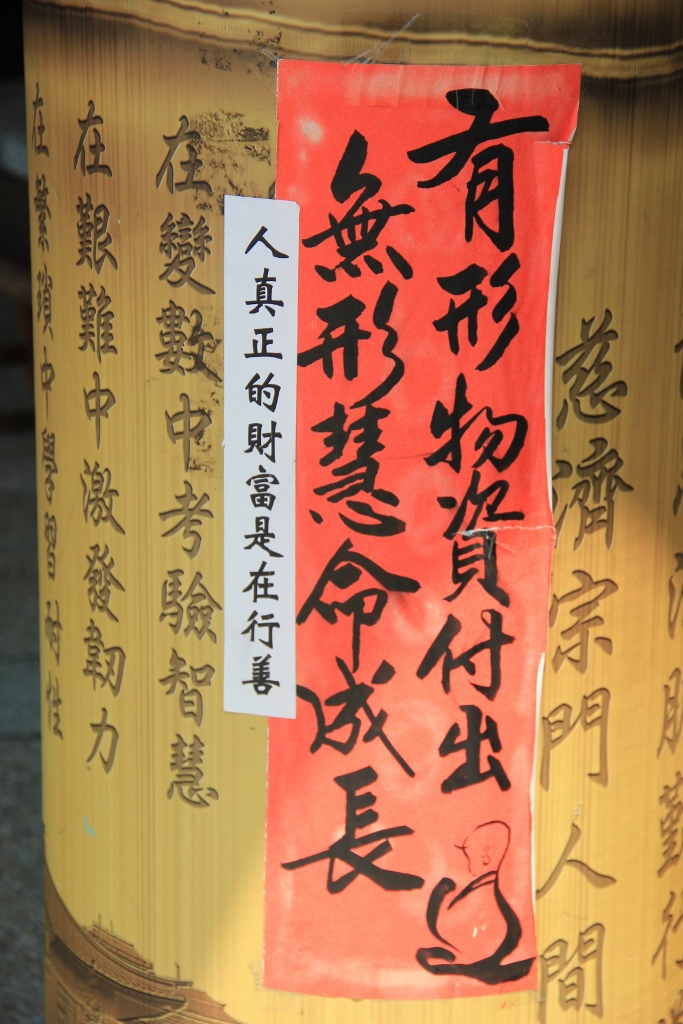 慈濟宗門人間
有形物資付出
無形慧命成長
人真正的財富是在行善
在變數中考驗智慧
在艱難中激發韌力
在繁瑣中學習耐性